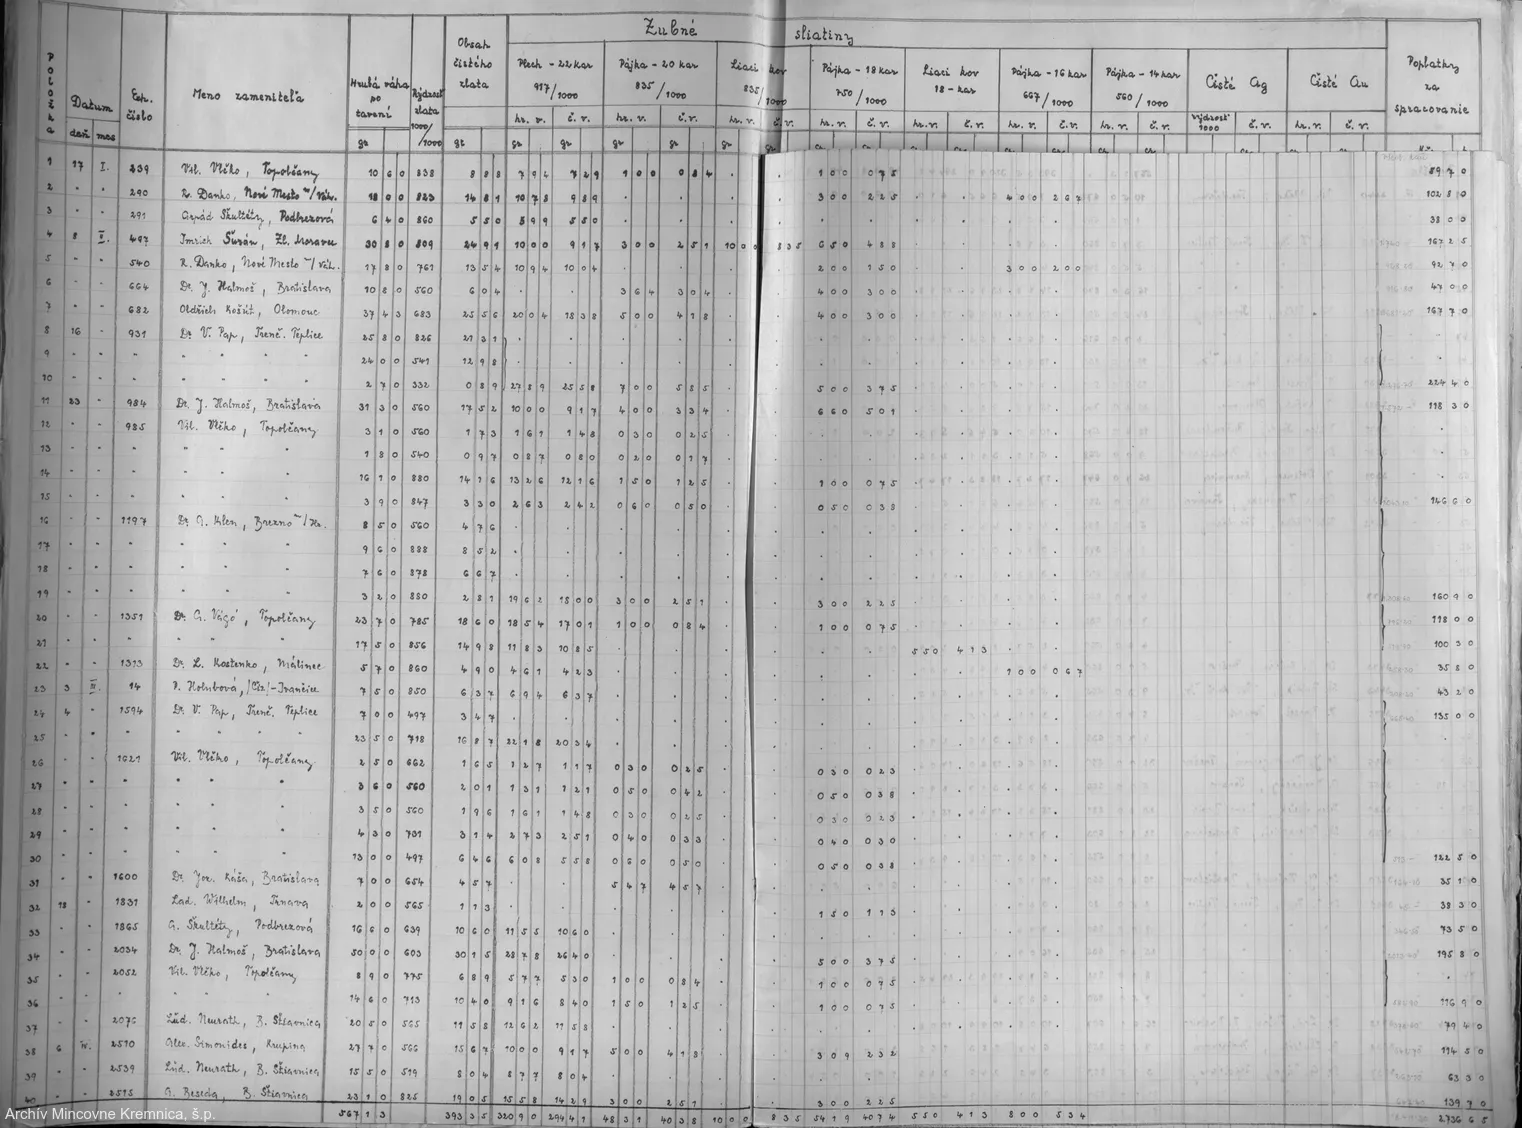 Zubné sliatiny
Položka
Datum
deň mes
Exp. číslo
Meno zamenitela
Hrubá váha po tavení
gr
Rýdzosť zlata 1000/1000
Obsah čistého zlata
gr
Plech - 22 kar 917/1000
hr. v. č. v.
Pájka - 20 kar 835/1000
hr. v. č. v.
Liaci kov 835/1000
hr. v. č. v.
Pájka - 18 kar 750/1000
hr. v. č. v.
Liaci kov 18 - kar
hr. v. č. v.
Pájka - 16 kar 667/1000
hr. v. č. v.
Pájka - 14 kar 560/1000
hr. v. č. v.
Čisté Ag
rýdzosť 1000 č. v.
Čisté Au
hr. v. č. v.
Poplatky za spracovanie
1 17 I. 239 Vil. Vlčko, Topolčany 10 60 838 8 88 7 94 7 29 1 00 0 84 1 00 0 75 59 70
2 " " 290 R. Danko, Nové Mesto n/Váh. 18 00 823 14 81 10 78 9 89 3 00 2 25 4 00 2 67 102 80
3 " " 291 Arpád Škultéty, Podbrezová 6 40 860 5 50 5 99 5 50 38 00
4 8 II. 497 Imrich Šurán, Zl. Moravce 30 80 809 24 91 10 00 9 17 3 00 2 51 10 00 8 35 6 50 4 88 167 25
5 " " 540 R. Danko, Nové Mesto n/Váh. 17 80 761 13 54 10 94 10 04 2 00 1 50 3 00 2 00 92 70
6 " " 664 Dr. J. Halmoš, Bratislava 10 80 560 6 04 3 64 3 04 4 00 3 00 47 00
7 " " 682 Oldřich Košút, Olomouc 37 43 683 25 56 20 04 18 38 5 00 4 18 4 00 3 00 167 70
8 16 " 931 Dr. V. Pap, Trenč. Teplice 25 80 826 21 31
9 " " " " 24 00 541 12 98
10 " " " " 2 70 332 0 89 27 89 25 58 7 00 5 85 5 00 3 75 224 40
11 23 " 984 Dr. J. Halmoš, Bratislava 31 30 560 17 52 10 00 9 17 4 00 3 34 6 60 5 01 118 30
12 " " 985 Vil. Vlčko, Topolčany 3 10 560 1 73 1 61 1 48 0 30 0 25
13 " " " " 1 80 540 0 97 0 87 0 80 0 20 0 17
14 " " " " 16 10 880 14 16 13 26 12 16 1 50 1 25 1 00 0 75
15 " " " " 3 90 847 3 30 2 63 2 42 0 60 0 50 0 50 0 38 146 60
16 " " 1197 Dr. A. Klen, Brezno n/Hr. 8 50 560 4 76
17 " " " " 9 60 888 8 52
18 " " " " 7 60 878 6 67
19 " " " " 3 20 880 2 81 19 62 18 00 3 00 2 51 3 00 2 25 160 90
20 " " 1351 Dr. A. Vágó, Topolčany 23 70 785 18 60 18 54 17 01 1 00 0 84 1 00 0 75 118 00
21 " " " " 17 50 856 14 98 11 83 10 85 5 50 4 13 100 30
22 " " 1373 Dr. L. Kostenko, Málinec 5 70 860 4 90 4 61 4 23 1 00 0 67 35 80
23 3 III. 14 A. Holubová, /Člz/-Ivančice 7 50 850 6 37 6 94 6 37 43 20
24 4 " 1594 Dr. V. Pap, Trenč. Teplice 7 00 497 3 47 135 00
25 " " 23 50 718 16 87 22 18 20 34
26 " " 1621 Vil. Vlčko, Topolčany 2 50 662 1 65 1 27 1 17 0 30 0 25 0 30 0 23
27 " " " " 3 60 560 2 01 1 31 1 21 0 50 0 42 0 50 0 38
28 " " " " 3 50 560 1 96 1 61 1 48 0 30 0 25 0 30 0 23
29 " " " " 4 30 731 3 14 2 73 2 51 0 40 0 33 0 40 0 30
30 " " " " 13 00 497 6 46 6 08 5 58 0 60 0 50 0 50 0 38 122 50
31 " " 1600 Dr. Joz. Káša, Bratislava 7 00 654 4 57 5 47 4 57 35 10
32 18 " 1831 Lad. Wilhelm, Trnava 2 00 565 1 13 1 50 1 13 38 30
33 " " 1865 A. Škultéty, Podbrezová 16 60 639 10 60 11 55 10 60 73 50
34 " " 2034 Dr. J. Halmoš, Bratislava 50 00 603 30 15 28 78 26 40 5 00 3 75 195 80
35 " " 2052 Vil. Vlčko, Topolčany 8 90 775 6 89 5 77 5 30 1 00 0 84 1 00 0 75
36 " " " 14 60 713 10 40 9 16 8 40 1 50 1 25 1 00 0 75 116 90
37 " " 2076 Lud. Neurath, B. Štiavnica 20 50 565 11 58 12 62 11 58 79 40
38 6 IV. 2510 Alex. Simonides, Krupina 27 70 566 15 67 10 00 9 17 5 00 4 18 3 09 2 32 114 50
39 " " 2539 Lud. Neurath, B. Štiavnica 15 50 519 8 04 8 77 8 04 63 30
40 " " 2575 A. Beseda, B. Štiavnica 23 10 825 19 05 15 58 14 29 3 00 2 51 3 00 2 25 139 70
567 13 393 35 320 90 294 41 48 31 40 38 10 00 8 35 54 19 40 74 5 50 4 13 8 00 5 34 2736 65
Archív Mincovne Kremnica, š.p.